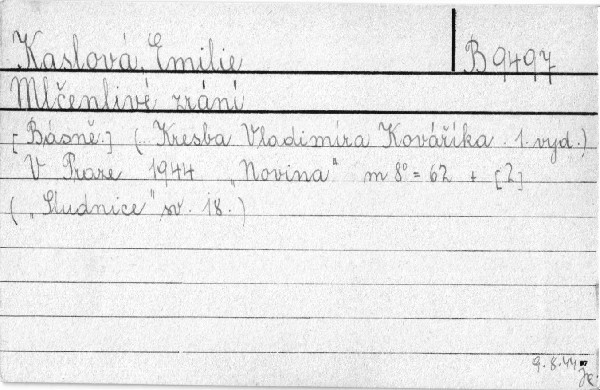 Kaslová, Emilie B 9497
Mlčenlivé zrání
[Básně.] (.. Kresba Vladimíra Kováříka. 1. vyd.)
V Praze 1944 "Novina" m 8° = 62 + [2]
("Studnice" sv. 18.)
9.8.44